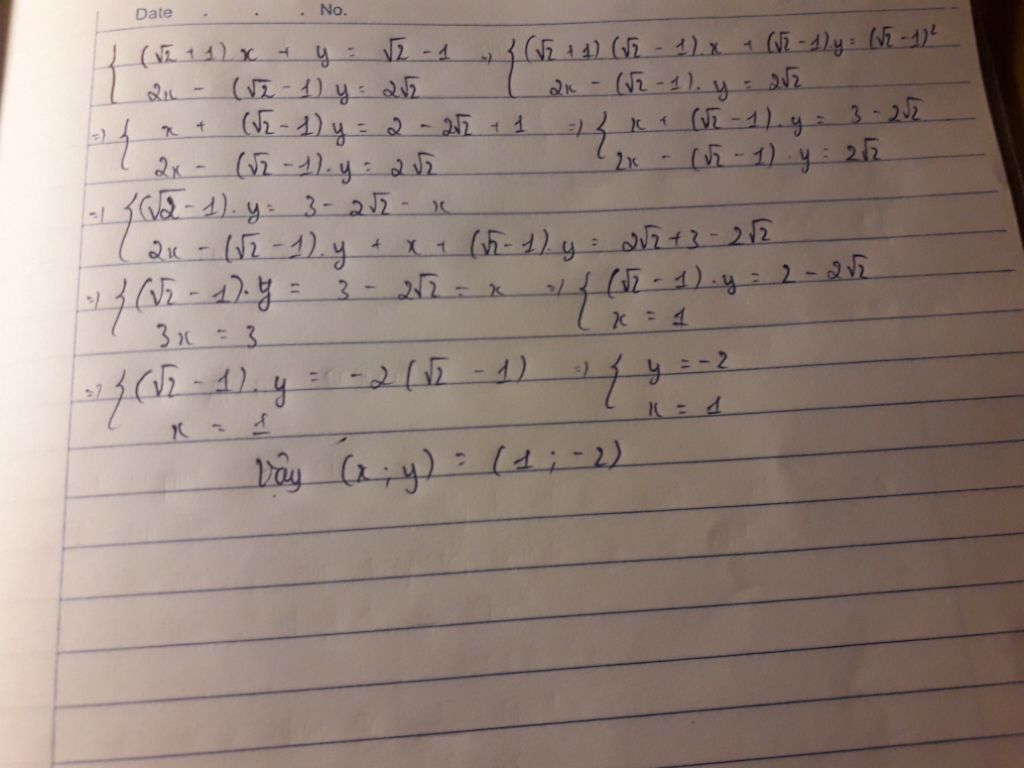 Date . . . No.
{ (√2 + 1) x + y = √2 - 1 => { (√2 + 1) (√2 - 1) . x + (√2 - 1) y = (√2 - 1)²
2x - (√2 - 1) y = 2√2 2x - (√2 - 1) . y = 2√2
=> { x + (√2 - 1) y = 2 - 2√2 + 1 => { x + (√2 - 1) . y = 3 - 2√2
2x - (√2 - 1) . y = 2√2 2x - (√2 - 1) . y = 2√2
=> { (√2 - 1) . y = 3 - 2√2 - x
2x - (√2 - 1) . y + x + (√2 - 1) . y = 2√2 + 3 - 2√2
=> { (√2 - 1) . y = 3 - 2√2 - x => { (√2 - 1) . y = 2 - 2√2
3x = 3 x = 1
=> { (√2 - 1) . y = -2 (√2 - 1) => { y = -2
x = 1 x = 1
Vậy (x ; y) = (1 ; -2)